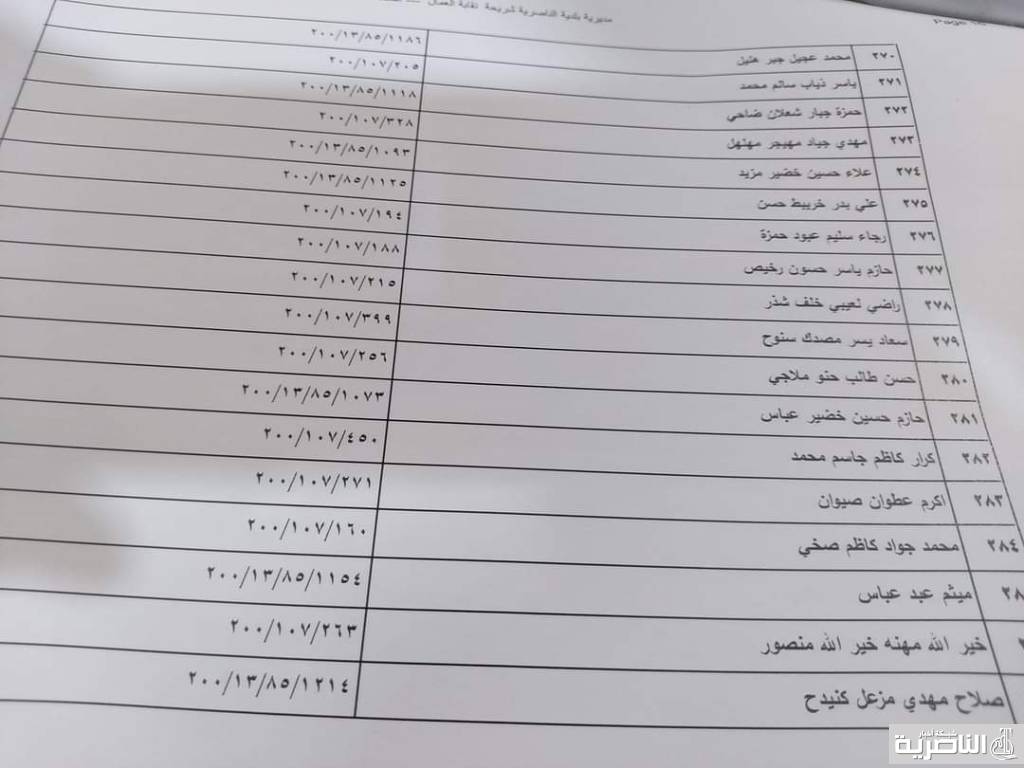 مديرية بلدية الناصرية شريحة نقابة العمال
Page
٢٧٠ محمد عجيل جبر هليل ٢٠٠/١٣/٨٥/١١٨٦
٢٧١ ياسر ذياب سالم محمد ٢٠٠/١٠٧/٢٠٥
٢٧٢ حمزة جبار شعلان ضاحي ٢٠٠/١٣/٨٥/١١١٨
٢٧٣ مهدي جياد مهيجر مهلهل ٢٠٠/١٠٧/٣٢٨
٢٧٤ علاء حسين خضير مزيد ٢٠٠/١٣/٨٥/١٠٩٣
٢٧٥ علي بدر خريبط حسن ٢٠٠/١٣/٨٥/١١٢٥
٢٧٦ رجاء سليم عبود حمزة ٢٠٠/١٠٧/١٩٤
٢٧٧ حازم ياسر حسون رخيص ٢٠٠/١٠٧/١٨٨
٢٧٨ راضي نعيبي خلف شذر ٢٠٠/١٠٧/٢١٥
٢٧٩ سعاد يسر مصدك سنوح ٢٠٠/١٠٧/٣٩٩
٢٨٠ حسن طالب حنو ملاجي ٢٠٠/١٠٧/٢٥٦
٢٨١ حازم حسين خضير عباس ٢٠٠/١٣/٨٥/١٠٧٣
٢٨٢ كرار كاظم جاسم محمد ٢٠٠/١٠٧/٤٥٠
٢٨٣ اكرم عطوان صيوان ٢٠٠/١٠٧/٢٧١
٢٨٤ محمد جواد كاظم صخي ٢٠٠/١٠٧/١٦٠
٢٨ ميثم عبد عباس ٢٠٠/١٣/٨٥/١١٥٤
خير الله مهنه خير الله منصور ٢٠٠/١٠٧/٢٦٣
صلاح مهدي مزعل كنيدح ٢٠٠/١٣/٨٥/١٢١٤
شبكة أخبار
الناصرية